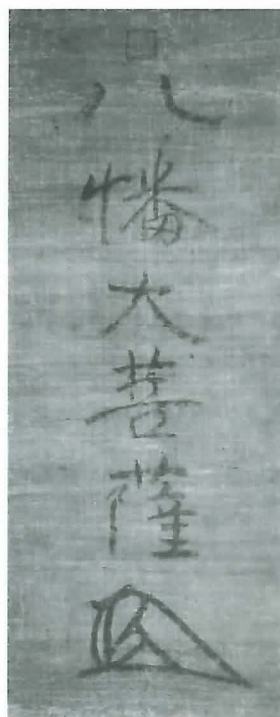 八幡大菩薩